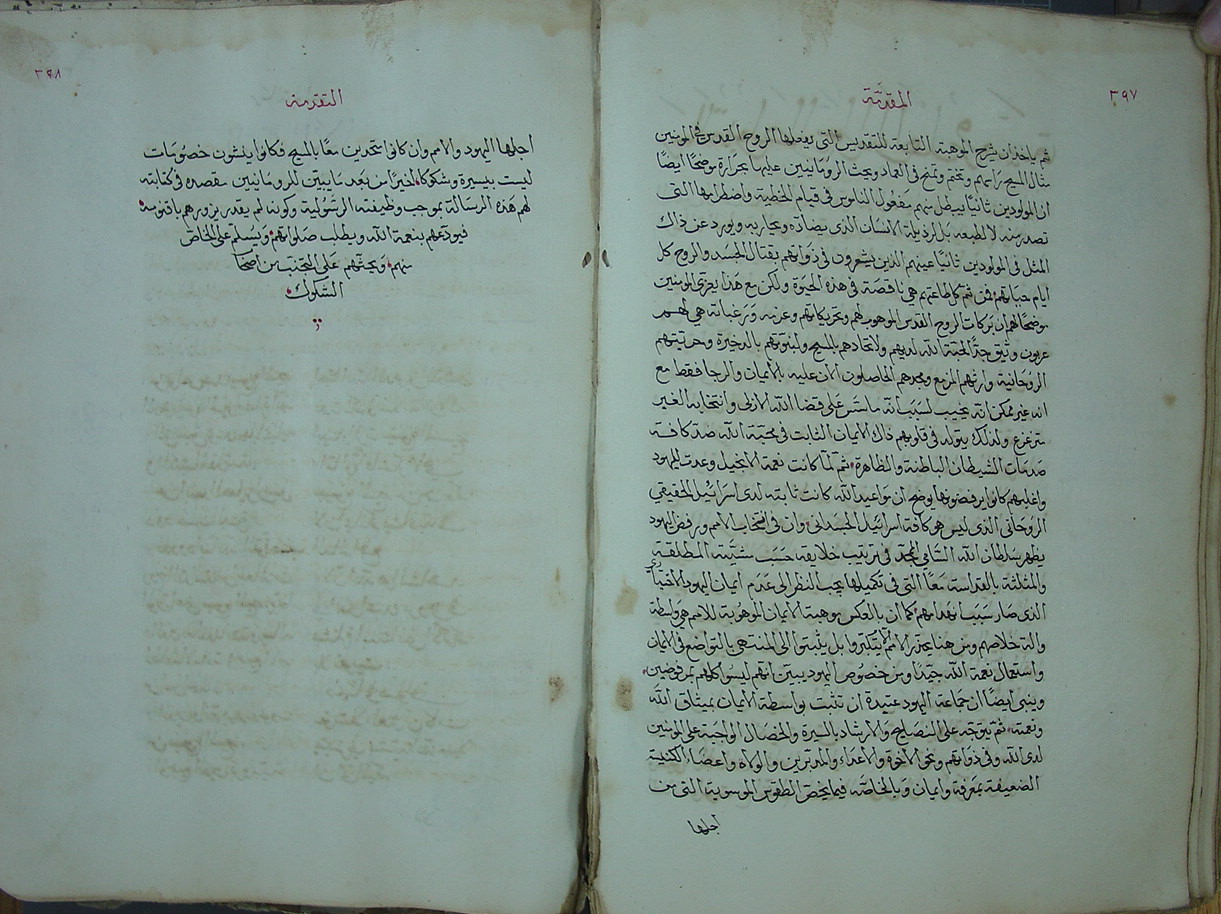 ٣٩٧
المقدمة
ثم ياخذ ان يشرح الموهبة التابعة للتقديس التي يفعلها الروح القدس في المومنين
مثال المسيح راسهم وتختم وتمنح في العماد ويحث الرومانيين عليها بحرارة موضحًا ايضًا
ان المولودين ثانيًا يبطل منهم مفعول الناموس في قيام الخطية واضطرابها التي
تصدر منه لا لطبعه بل لرذيلة الانسان الذي يضاده ويحاربه ويورد عن ذلك
المثل في المولودين ثانيًا عينهم الذين يشعرون في ذواتهم بقتال الجسد والروح كل
ايام حياتهم فمن ثم كل طاعتهم هي ناقصة في هذه الحيوة ولكن مع هذا يعزي المومنين
موضحًا لهم ان بركات الروح القدس الموهوب لهم وتحريكاتهم وعزمه ورغباته هي لهم
عربون وثيق جدًا لمحبة الله لديهم ولاتحادهم بالمسيح ولبنوتهم بالدخيرة وحريتهم
الروحانية وارثهم المزمع ومجدهم الحاصلون الان عليه بالايمان والرجا فقط مع
انه غير ممكن انه يخيب لسبب انه ماسس على قضا الله الازلي وانتخابه الغير
متزعزع ولذلك يتولد في قلوبهم ذاك الايمان الثابت في محبة الله ضد كافة
صدمات الشيطان الباطنة والظاهرة ثم لما كانت نعمة الانجيل وعدت لليهود
واغلبهم كانوا يرفضونها يوضح ان مواعيد الله كانت ثابته لدى اسرائيل الحقيقي
الروحاني الذي ليس هو كافة اسرائيل الجسداني وان في انتخاب الامم ورفض اليهود
يظهر سلطان الله السامي المجد في ترتيب خلايقه حسب مشيته المطلقة
والمثلثة بالقداسة معًا التي في تكميلها يجب النظر الى عدم ايمان اليهود الاختياري
الذي صار سببا لهم كما ان بالعكس موهبة الايمان الموهوبة للامم هي واسطة
والة خلاصهم ومن هنا يحذر الامم الا يتكبروا بل يثبتوا الى المنتهى بالتواضع في الايمان
واستعمال نعمة الله جيدًا ومن خصوص اليهود يبين انهم ليسوا كلهم بمرفوضين
وينبي ايضًا ان جماعة اليهود عتيدة ان تثبت بواسطة الايمان بميثاق الله
ونعمته ثم يتوجه على النصايح والارشاد بالسيرة والخصال الواجبة على المومنين
لدى الله وفي ذواتهم ونحو الاخوة والاعداء والمدبرين والولاه واعضاء الكنيسة
الضعيفة بمعرفة وايمان وبالخاصه فيما يخص الطقوس الموسوية التي من
اجلها
٣٩٨
التقدمة
اجلها اليهود والامم وان كانوا متحدين معًا بالمسيح فكانوا ينشون خصومات
ليست بيسيرة وشكوكا اخيرًا من بعد ما يبين للرومانيين مقصده في كتابته
لهم هذه الرسالة بموجب وظيفته الرسولية وكونه لم يقدر يزورهم باقنومه
فيودعهم بنعمة الله ويطلب صلواتهم ويسلم على الخاص
منهم ويحثهم على التجنب من اصحاب
الشكوك